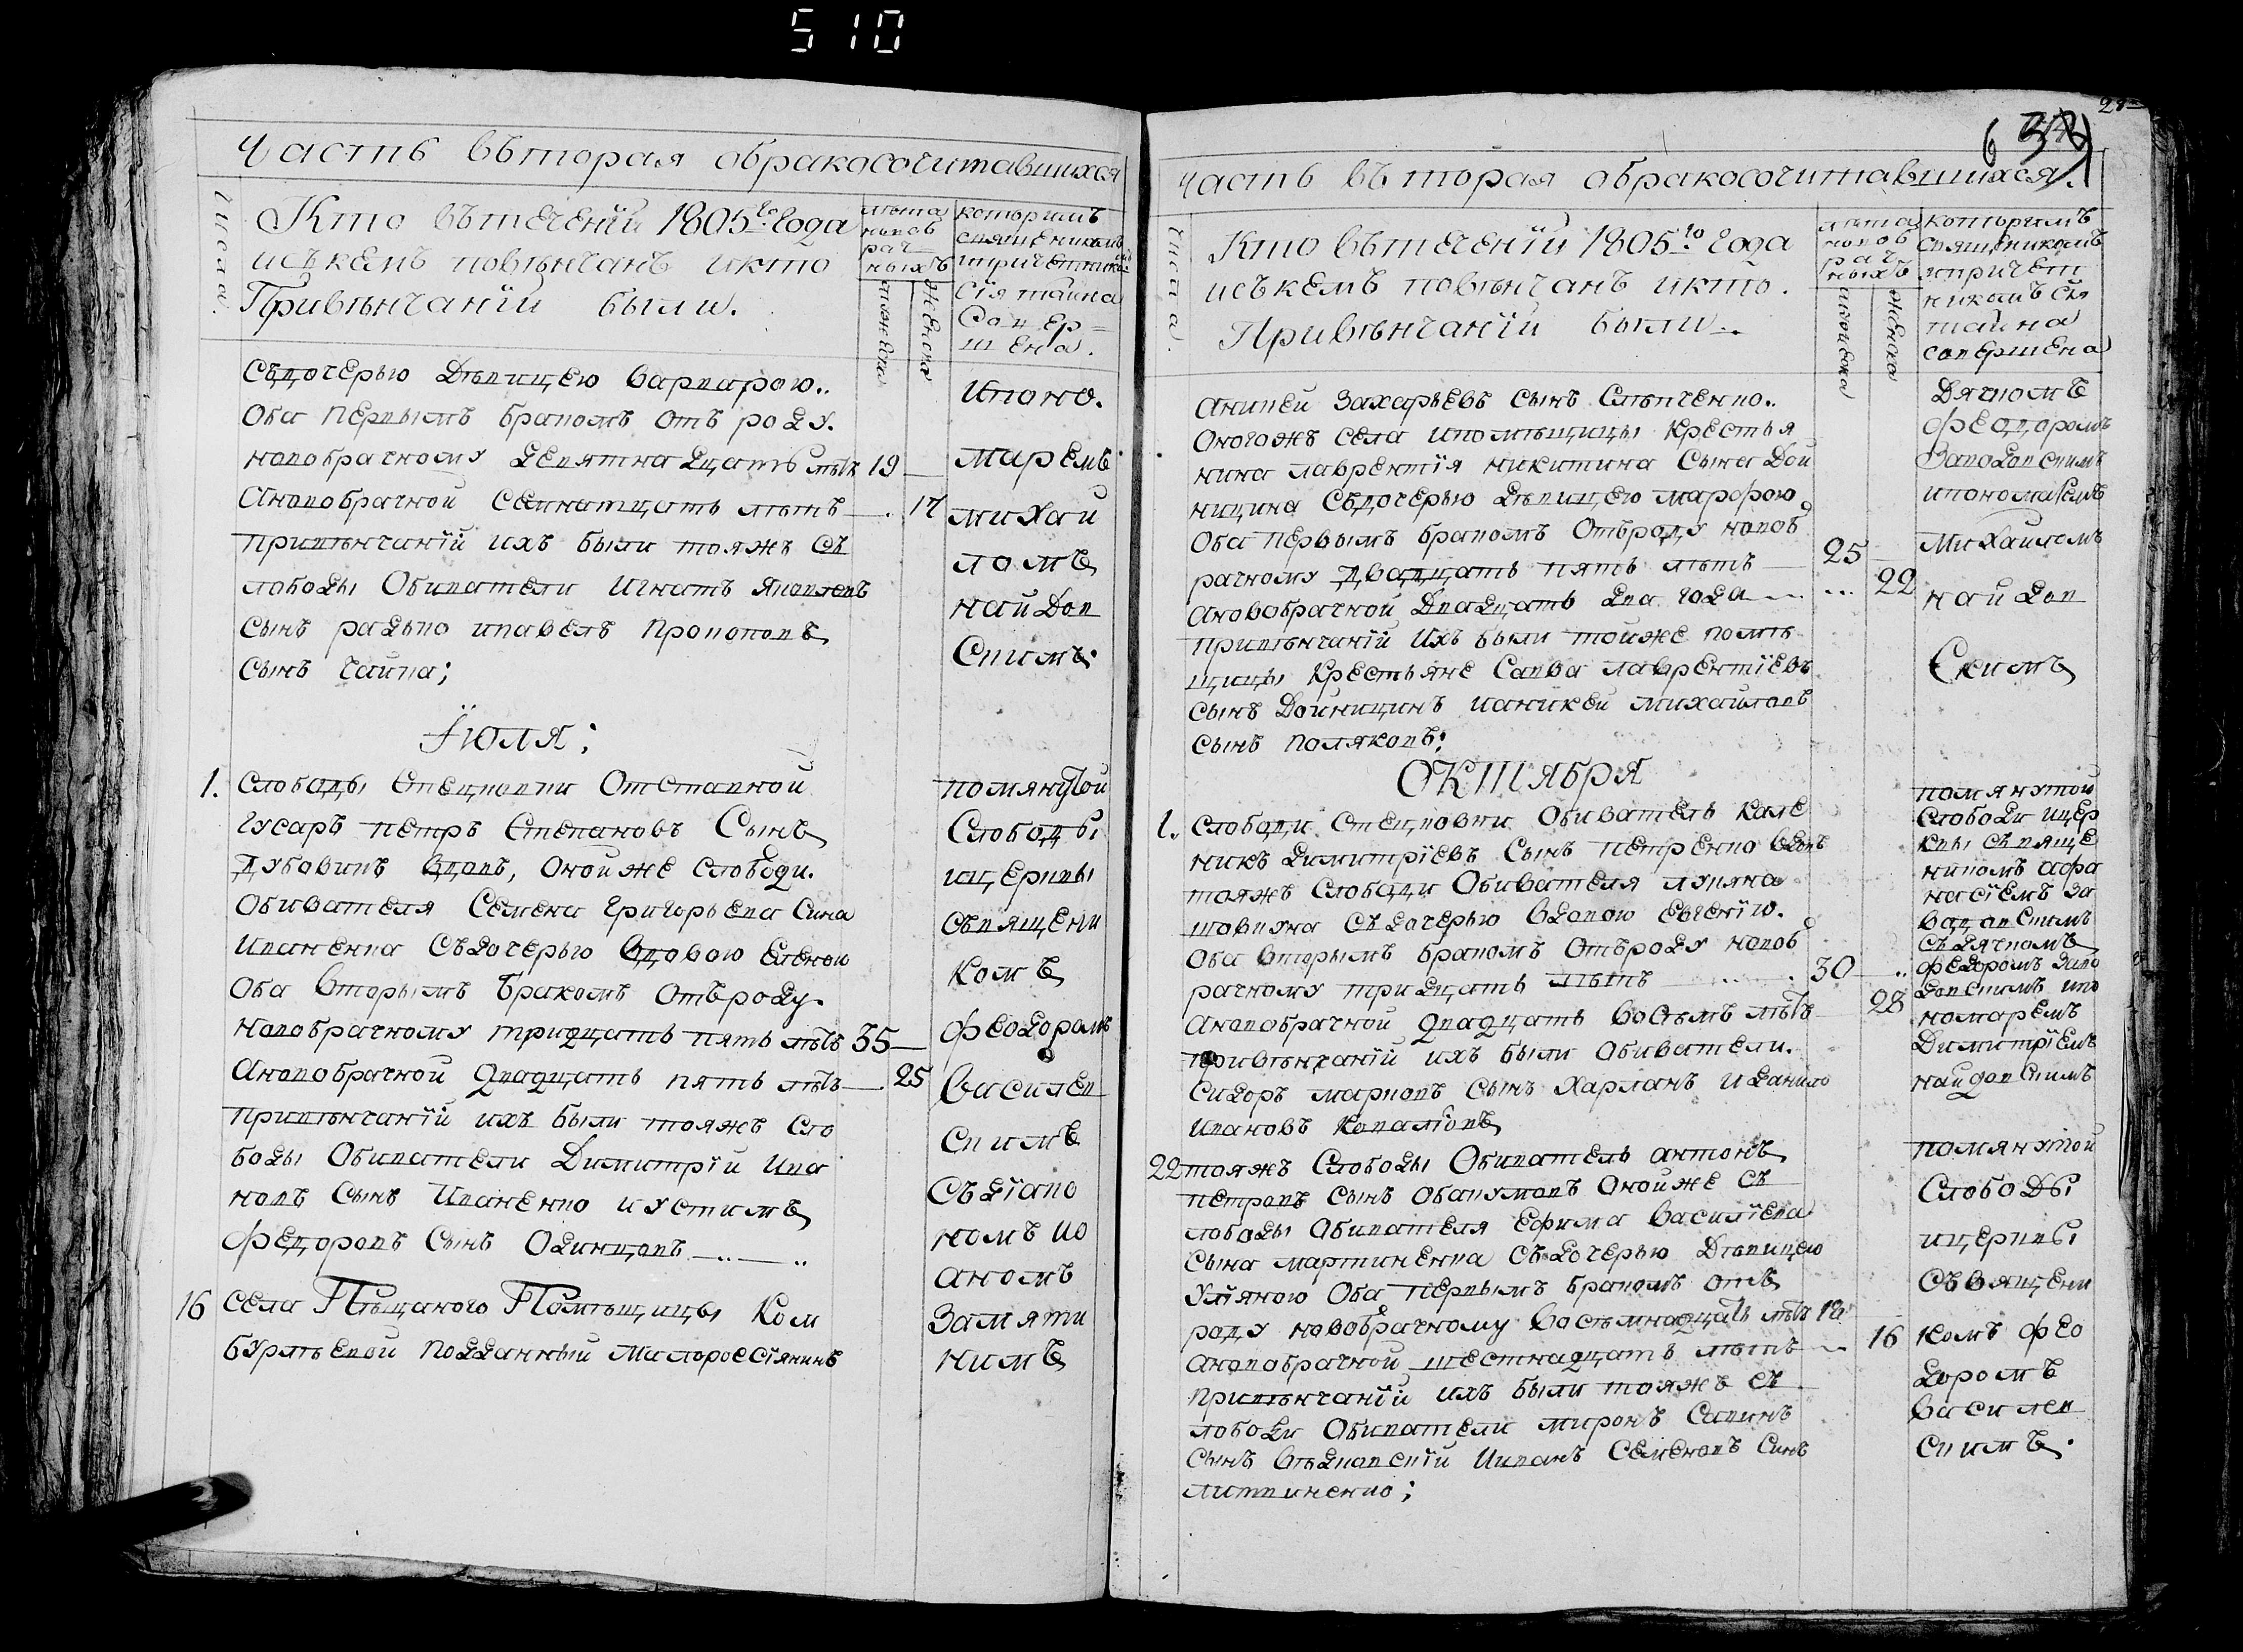 510
Часть вѣторая обракосочитавшихся
Числа.
Кто вѣтеченїи 1805го. Года
исъкемъ повѣнчанъ икто
Привѣнчанїи были.
лѣта
новоб
рач
ныхъ
мужеска
женска
которимъ
священикомъ
ипричетником
сїя таина
Совер=
шена.
Съдочерью Дѣвицею варварою..
Оба первымъ бракомъ отъ роду.
новобрачному девятнадцать лѣтъ 19
Ановобрачной семнатцать лѣтъ 17
привѣнчанїй ихъ были тояжъ съ
лободы Обиватели Игнатъ Яковлевъ
сынъ радько ипавелъ прокоповъ
сынъ чайка;
ипоно.
маремъ
михаи
ломъ
найдов
Скимъ.
Їюля;
1. слободы Стецковки Отставной
гусаръ петръ Степановъ Сынъ
дубовикъ вдовъ, оной же слободи.
Обивателя Семена Григорьева Сина
Иваненка съдочерью вдовою Еленои
Оба вторымъ бракомъ отъроду.
новобрачному тридцать пять лѣтъ 35
Ановобрачной двадцать пять лѣтъ 25
привѣнчанїй ихъ были тояжъ сло
боды Обиватели Димитрїй Ива
новъ сынъ Иваненко иустимъ
федоровъ сынъ Одинцовъ
помянутой
Слободы
ицеркви
съвящени
комъ
феодоромъ
василев
скимъ
съдїако
номъ ио
аномъ
Замяти
нимъ
16 села Пѣщаного Помѣщицы Ком
бурлѣевой подданный малоросcїянинъ
28
6
Часть вѣторая обракосочитавшихся.
Числа.
Кто вѣтеченїи 1805го Года
исъкемъ повѣнчанъ икто.
Привѣнчанїи были
лѣта
новоб
рач
ныхъ
мужеска
женска
которымъ
священикомъ
ипричет
никомъ сїя
таина
совершена
Аникей захарьевъ сынъ Слѣпченко.
Оногожъ села ипомѣщицы крестья
нина лаврентїя никитина сына Дой
ницина Съдочерью дѣвицею марфою
Оба первымъ бракомъ Отъроду новоб
рачному двадцать пять лѣтъ 25
ановобрачной двадцать два года 22
привѣнчанїй ихъ были тойже помѣ
щицы крестьяне Савва лаврентїевъ
сынъ Дойницинъ ианикей михайловъ
сынъ поляковъ;
Дячкомъ
феодоромъ
Заводовскимъ
ипономаремъ
михаиломъ
найдов
Скимъ
ОКТЯбрЯ
1. слободи Стецковки Обиватель кале
никъ димитрїевъ сынъ петренко вдовъ
тояжъ слободи Обивателя лукяна
шовкуна съдочерью вдовою евгенїю.
Оба вторымъ бракомъ отъроду новоб
рачному тридцать лѣтъ 30
Ановобрачной двадцать восъмъ лѣтъ 28
привѣнчанїй ихъ были Обиватели.
сидоръ марковъ сынъ харланъ иданило
Ивановъ Ковалїовъ
помянутой
слободи ицер
кви съвяще
никомъ афа
насїемъ за
вадовскимъ
съдячкомъ
федоромъ заво
довскимъ ипо
номаремъ
Димитрїемъ
найдовскимъ
22 тояжъ слободы Обиватель антонъ
петровъ сынъ Обакумовъ оной же съ
лободы Обивателя ефима василїева
сына мартиненка съдочерью Дѣвицею
Улїяною Оба первымъ бракомъ отъ
роду новобрачному восъмнадцать лѣтъ 18
Ановобрачной шестнадцать лѣтъ 16
привѣнчанїй ихъ были тояжъ съ
лободи Обиватели миронъ Савинъ
сынъ вѣдковскїй Иванъ семеновъ синъ
литвиненко;
помянутой
слободы
ицеркви
съвящени
комъ фео
доромъ
василев
скимъ.